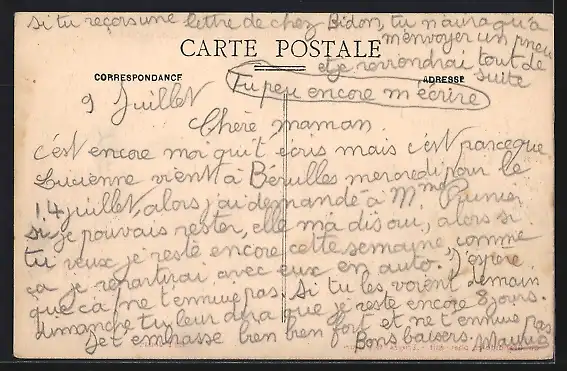 si tu reçois une lettre de chez Bidon, tu n'aura qu'à
m'envoyer un pneu
et je reviendrai tout de
suite
CARTE POSTALE
CORRESPONDANCE
ADRESSE
Tu peu encore m'écrire
9 Juillet
Chère maman
c'est encore moi qui t'écris mais c'est parceque
Lucienne vient à Bérulles mercredi pour le
14 juillet, alors j'ai demandé à Mme Prunier
si je pouvais rester, elle m'a dis oui, alors si
tu veux je reste encore cette semaine, comme
ça je repartirai avec eux en auto. J'espère
que ça ne t'ennuie pas. Si tu les voient demain
dimanche tu leur dira que je reste encore 8 jours.
Je t'embrasse bien bien fort et ne t'ennuie pas
Bons baisers.